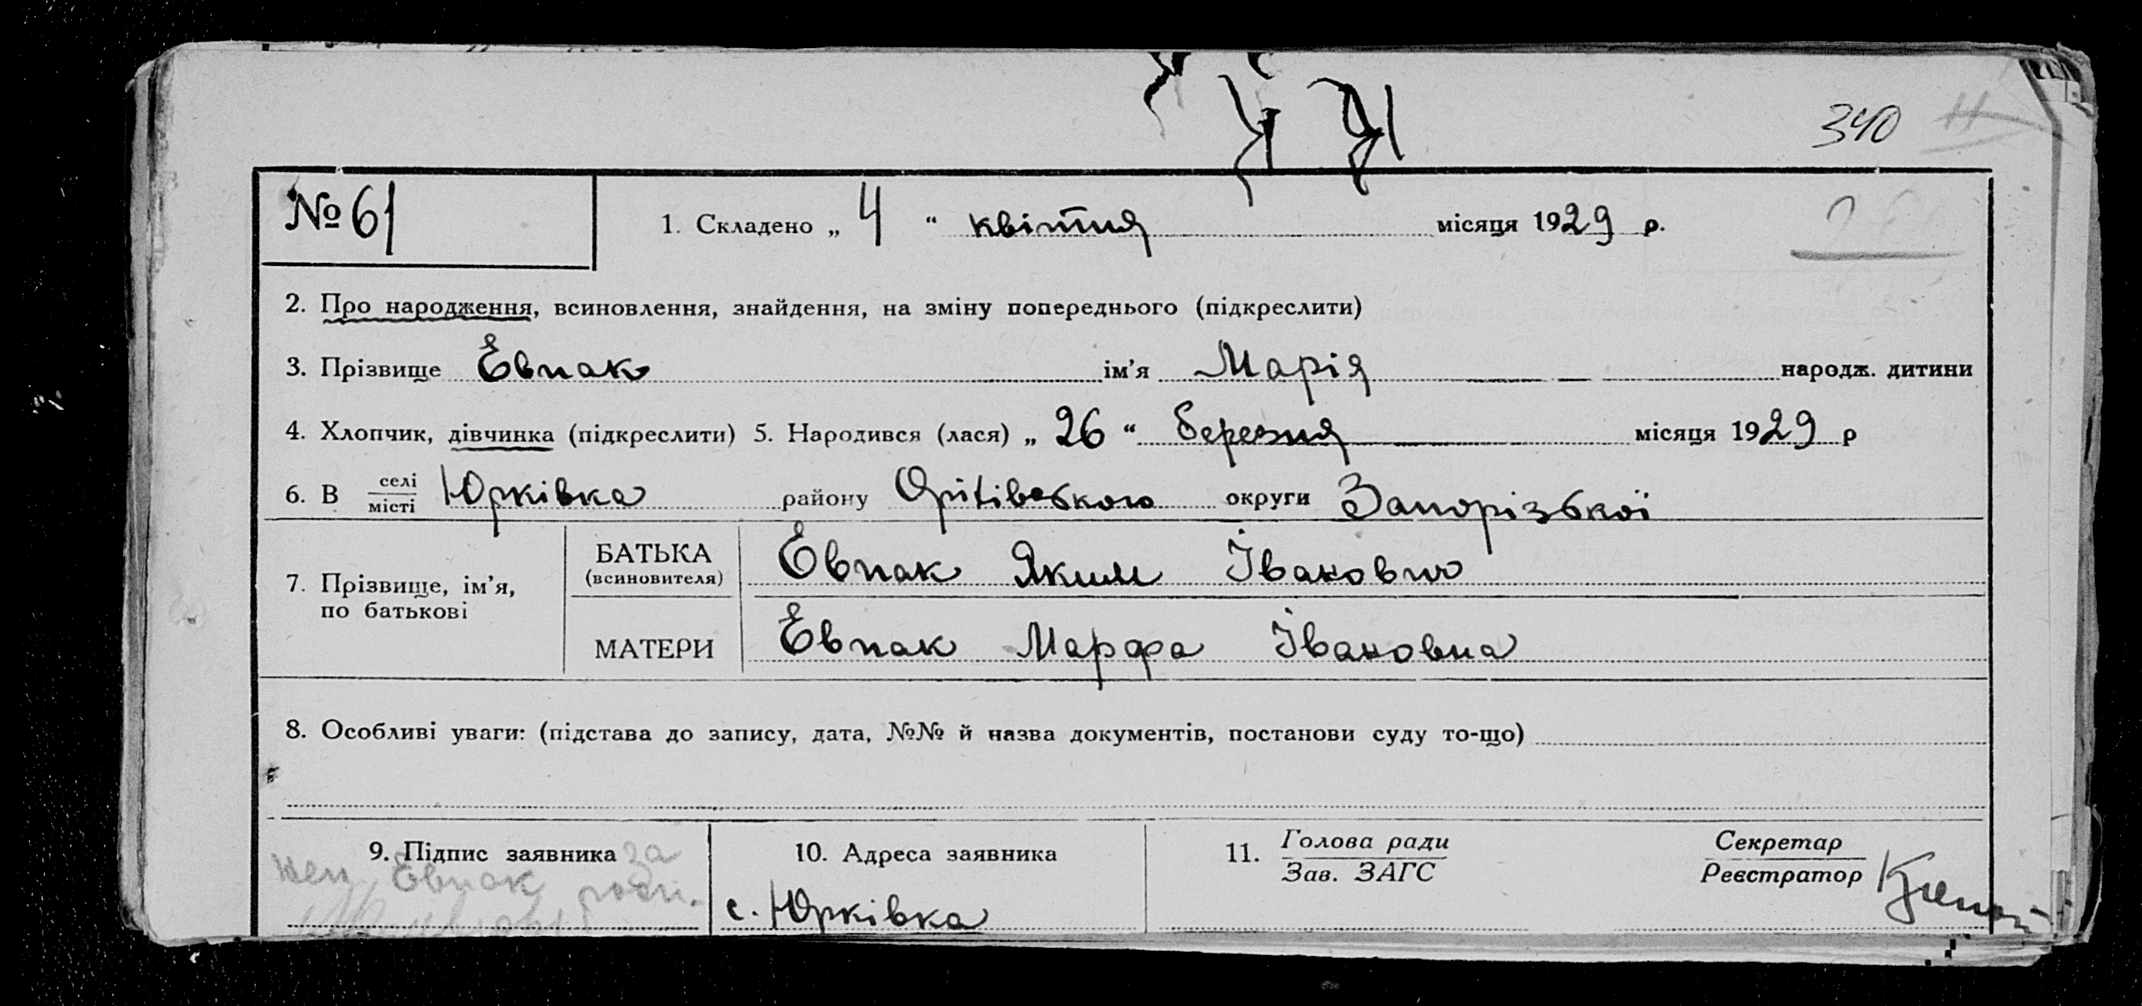 340
№ 61 1. Складено „ 4 “ квітня місяця 1929 р.
2. Про народження, всиновлення, знайдення, на зміну попереднього (підкреслити)
3. Прізвище Евпак ім’я Марія народж. дитини
4. Хлопчик, дівчинка (підкреслити) 5. Народився (лася) „ 26 “ березня місяця 1929 р
6. В селі місті Юрківка району Оріхівського округи Запорізької
7. Прізвище, ім’я, по батькові
БАТЬКА (всиновителя) Евпак Яким Іванович
МАТЕРИ Евпак Марфа Івановна
8. Особливі уваги: (підстава до запису, дата, №№ й назва документів, постанови суду то-що)
9. Підпис заявника за
Евпак
10. Адреса заявника
с. Юрківка
11. Голова ради
Зав. ЗАГС
Секретар
Реєстратор